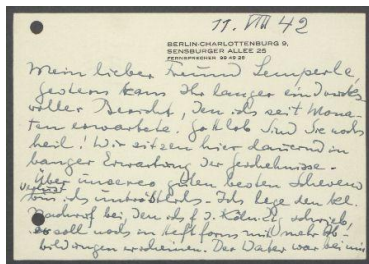 11. VIII 42
BERLIN-CHARLOTTENBURG 9,
SENSBURGER ALLEE 25
FERNSPRECHER 99 45 25
Mein lieber Freund Lemperle,
gestern kam Ihr langer eindrucks
voller Bericht, den ich seit Mona-
ten erwartete. Gottlob sind Sie noch
heil! Wir sitzen hier dauernd in
banger Erwartung der Geschehnisse.
Über unseres guten besten Scheven
Verlust
bin ich untröstlich. Ich lege den kl.
Nachruf bei, den ich f. d. Köln. Z. schrieb,
er soll noch in Heftform mit mehr Ab-
bildungen erscheinen. Der Vater war bei mir